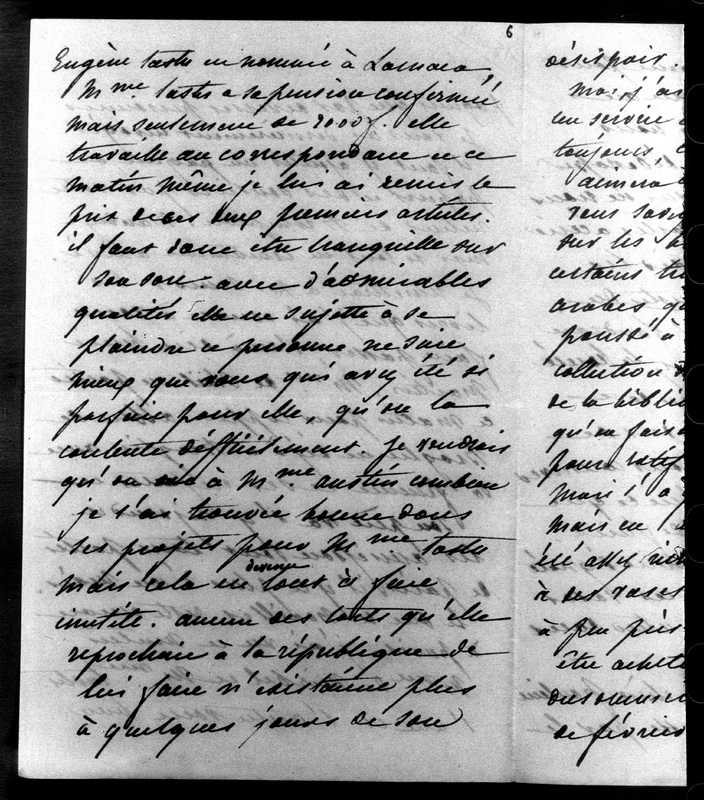 6
Eugène tastu est nommé à Larnaca,
Mme tastu a sa pension confirmée
mais seulement de 2000 f. elle
travaille au correspondant et ce
matin même je lui ai remis le
prix de ses deux premiers articles.
il faut donc être tranquille sur
son sort. avec d'admirables
qualités elle est sujette à se
plaindre et personne ne sait
mieux que vous qui avez été si
parfait pour elle, qu'on la
contente difficilement. je voudrais
qu'on dit à Mme austin combien
je l'ai trouvée bonne dans
ses projets pour Mme tastu
mais cela est devenu tout à fait
inutile. aucun des torts qu'elle
reprochait à la république de
lui faire n'existaient plus
à quelques jours de son
désespoir.
moi, j'ai
en service
toujours,
aimera
vous
sur les
certains
arabes
poussé à
collection
de la biblio
qu'on
pour
mais l'a
mais
été assez
à des vases
à peu près
être acheté
de février